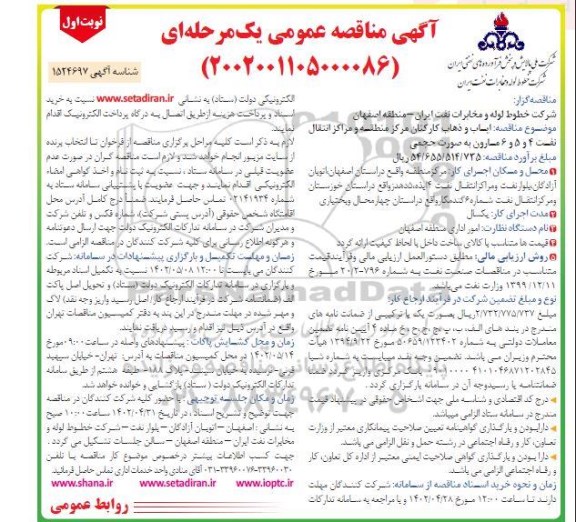 نوبت اول
آگهی مناقصه عمومی یک‌مرحله‌ای
(۲۰۰۲۰۰۱۱۰۵۰۰۰۰۸۶)
شناسه آگهی ۱۵۲۴۶۹۷
شرکت ملی پالایش و پخش فرآورده‌های نفتی ایران
شرکت خطوط لوله و مخابرات نفت ایران
مناقصه‌گزار:
شرکت خطوط لوله و مخابرات نفت ایران –منطقه اصفهان
موضوع مناقصه: ایاب و ذهاب کارکنان مرکز منطقه و مراکز انتقال
نفت ۴ و ۵ و ۶ مارون به صورت حجمی
مبلغ برآورد مناقصه: ۵۴/۶۵۵/۵۱۴/۷۳۵ ریال
محل و مکان اجرای کار: مرکز منطقه واقع در استان اصفهان اتوبان
آزادگان بلوار نفت و مراکز انتقال نفت ۴ ایذه ۵ دهدز واقع در استان خوزستان
و مرکز انتقال نفت شماره ۶ کندمکار واقع در استان چهارمحال و بختیاری
مدت اجرای کار: یکسال
نام دستگاه نظارت: امور اداری منطقه اصفهان
قیمت ها متناسب با کالای ساخت داخل با لحاظ کیفیت ارائه گردد
روش ارزیابی مالی: مطابق دستورالعمل ارزیابی مالی و فرآیند قیمت
متناسب در مناقصات صنعت نفت به شماره ۷۹۶-۲۰۲ مورخ
۱۳۹۹/۱۲/۱۱ وزارت نفت می‌باشد.
نوع و مبلغ تضمین شرکت در فرآیند ارجاع کار:
۲/۷۳۲/۷۷۵/۷۳۷ ریال بصورت یک یا ترکیبی از ضمانت نامه های
مندرج در بند های الف، ب، پ، ج، چ، ح و خ ماده ۴ آیین نامه تضمین
معاملات دولتی به شماره ۱۲۳۴۰۲/ت۵۰۶۵۹ه مورخ ۱۳۹۴/۹/۲۲ هیأت
محترم وزیران می باشد. تضمین وجه نقد میبایست به شماره شبا
ضمانتنامه یا رسید وجه آن در سامانه بارگزاری گردد.
درج کد اقتصادی و شناسه ملی جهت اشخاص حقوقی در پیشنهاد قیمت
مندرج در سامانه ستاد الزامی میباشد.
دارا بودن و بارگذاری گواهینامه تعیین صلاحیت پیمانکاری معتبر از وزارت
تعاون، کار و رفاه اجتماعی در رشته حمل و نقل الزامی می باشد.
دارا بودن و بارگذاری گواهی صلاحیت ایمنی معتبر از اداره کل تعاون، کار
و رفاه اجتماعی الزامی می باشد.
زمان و نحوه خرید اسناد مناقصه از سامانه: شرکت کنندگان مهلت
دارند تا ساعت ۱۲:۰۰ مورخ ۱۴۰۲/۰۴/۲۸ و با مراجعه به سامانه تدارکات
الکترونیکی دولت (ستاد) به نشانی www.setadiran.ir نسبت به خرید
اسناد و پرداخت هزینه از طریق اتصال به درگاه پرداخت الکترونیک اقدام
نمایند.
لازم به ذکر است کلیه مراحل برگزاری مناقصه از فراخوان تا انتخاب برنده
از سایت مزبور انجام خواهد شد و لازم است مناقصه گران در صورت عدم
عضویت قبلی در سامانه ستاد، نسبت به ثبت نام و اخذ گواهی امضاء
الکترونیکی اقدام نمایند و جهت عضویت با پشتیبانی سامانه ستاد به
شماره ۰۲۱۴۱۹۳۴ تماس حاصل فرمایند ضمناً درج کامل آدرس محل
اقامتگاه شخص حقوقی (آدرس پستی شرکت) شماره فکس و تلفن شرکت
و مدیران شرکت در سامانه تدارکات الکترونیک دولت جهت ارسال دعوتنامه
و هرگونه اطلاع رسانی برای کلیه شرکت کنندگان در مناقصه الزامی است.
زمان و مهلت تکمیل و بارگزاری پیشنهادات در سامانه: شرکت
کنندگان می بایست تا ۱۲:۰۰ ۱۴۰۲/۰۵/۰۸ نسبت به تکمیل اسناد مربوطه
و بارگزاری در سامانه تدارکات الکترونیک دولت (ستاد) و تحویل اصل پاکت
الف (ضمانتنامه شرکت در فرآیند ارجاع کار/اصل رسید واریز وجه نقد) لاک
و مهر شده در مهلت مندرج در این بند به دفتر کمیسیون مناقصات تهران
واقع در آدرس ذیل نیز اقدام و رسید دریافت نمایند.
زمان و محل گشایش پاکات: پیشنهادهای واصله در ساعت ۰۹:۰۰ مورخ
۱۴۰۲/۰۵/۱۴ در محل کمیسیون مناقصات به آدرس تهران- خیابان سپهبد
تدارکات الکترونیک دولت (ستاد) بازگشایی و خوانده خواهد شد.
زمان و مکان جلسه توجیهی: حضور کلیه شرکت کنندگان در مناقصه
جهت توضیح و تشریح اسناد، در تاریخ ۱۴۰۲/۰۴/۳۱ ساعت ۱۰:۰۰ صبح
به نشانی: اصفهان – اتوبان آزادگان – بلوار نفت – شرکت خطوط لوله و
مخابرات نفت ایران – منطقه اصفهان – سالن جلسات تشکیل می گردد.
جهت کسب اطلاعات بیشتر درخصوص موضوع کار مناقصه با تلفن
۳۳۹۶۰۰۳۰-۳۳۹۶۰۰۷۶-۰۳۱ آقای مدادی واحد خدمات اداری تماس حاصل فرمائید.
www.shana.ir www.setadiran.ir www.ioptc.ir
روابط عمومی